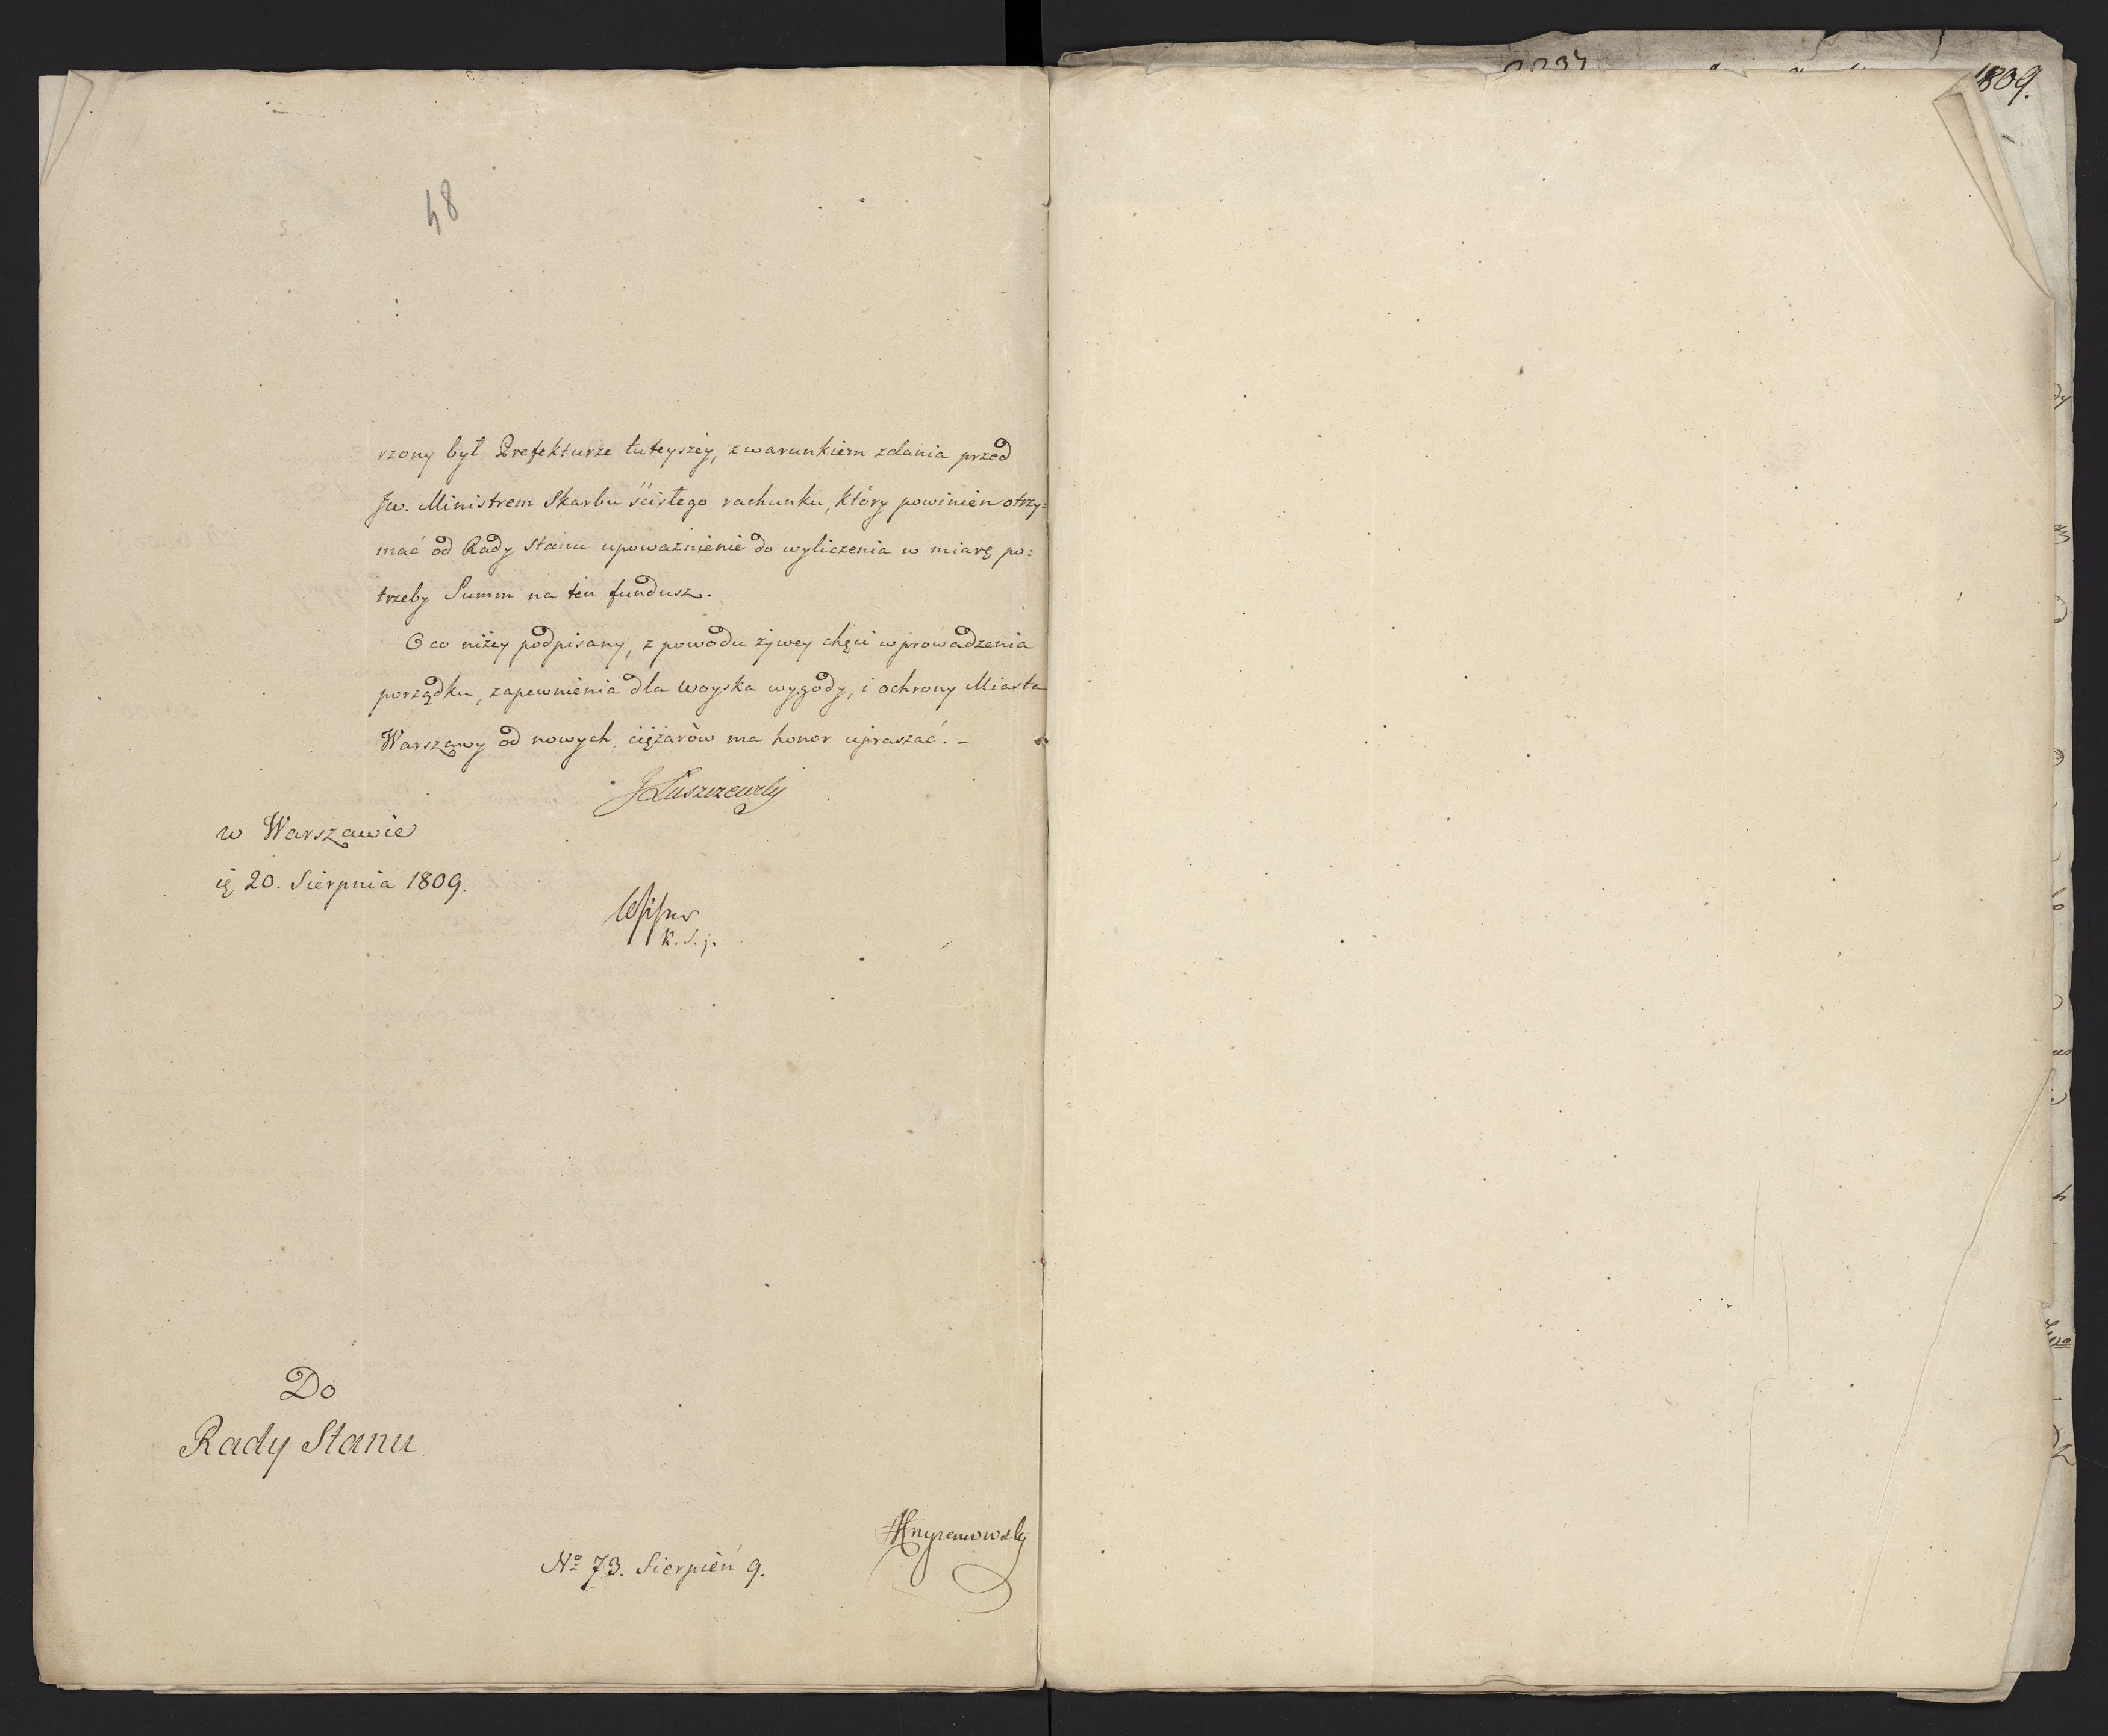 48
rzony był Prefekturze tuteyszéy, z warunkiem zdania przed
Jw. Ministrem Skarbu ścisłego rachunku, który powinien otrzy=
mać od Rady Stanu upoważnienie do wyliczenia w miarę po=
trzeby Summ na ten fundusz.
O co niżey podpisany, z powodu żywey chęci wprowadzenia
porządku, zapewnienia dla Woyska wygody, i ochrony Miasta
Warszawy od nowych ciężarów ma honor upraszać. –
JŁuszczewsky
w Warszawie
ię 20. Sierpnia 1809.
K. S. j.
Do
Rady Stanu
No 73. Sierpień 9.
1809.